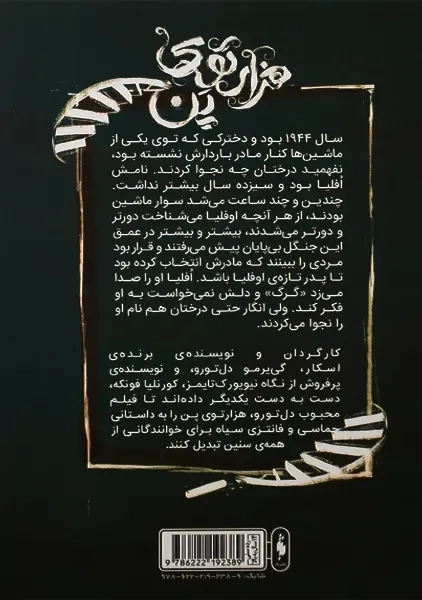 هزارتوی
پن
سال ۱۹۴۴ بود و دخترکی که توی یکی از
ماشین‌ها کنار مادر باردارش نشسته بود،
نفهمید درختان چه نجوا کردند. نامش
اُفلیا بود و سیزده سال بیشتر نداشت.
چندین و چند ساعت می‌شد سوار ماشین
بودند، از هر آنچه اوفلیا می‌شناخت دورتر
و دورتر می‌شدند، بیشتر و بیشتر در عمق
این جنگل بی‌پایان پیش می‌رفتند و قرار بود
مردی را ببینند که مادرش انتخاب کرده بود
تا پدر تازه‌ی اوفلیا باشد. اُفلیا او را صدا
می‌زد «گرگ» و دلش نمی‌خواست به او
فکر کند. ولی انگار حتی درختان هم نام او
را نجوا می‌کردند.
کارگردان و نویسنده‌ی برنده‌ی
اسکار، گی‌یرمو دل‌تورو، و نویسنده‌ی
پرفروش از نگاه نیویورک‌تایمز، کورنلیا فونکه،
دست به دست یکدیگر داده‌اند تا فیلم
محبوب دل‌تورو، هزارتوی پن را به داستانی
حماسی و فانتزی سیاه برای خوانندگانی از
همه‌ی سنین تبدیل کنند.
9 786222 192389
شابک: ۹-۲۳۸-۲۱۹-۶۲۲-۹۷۸